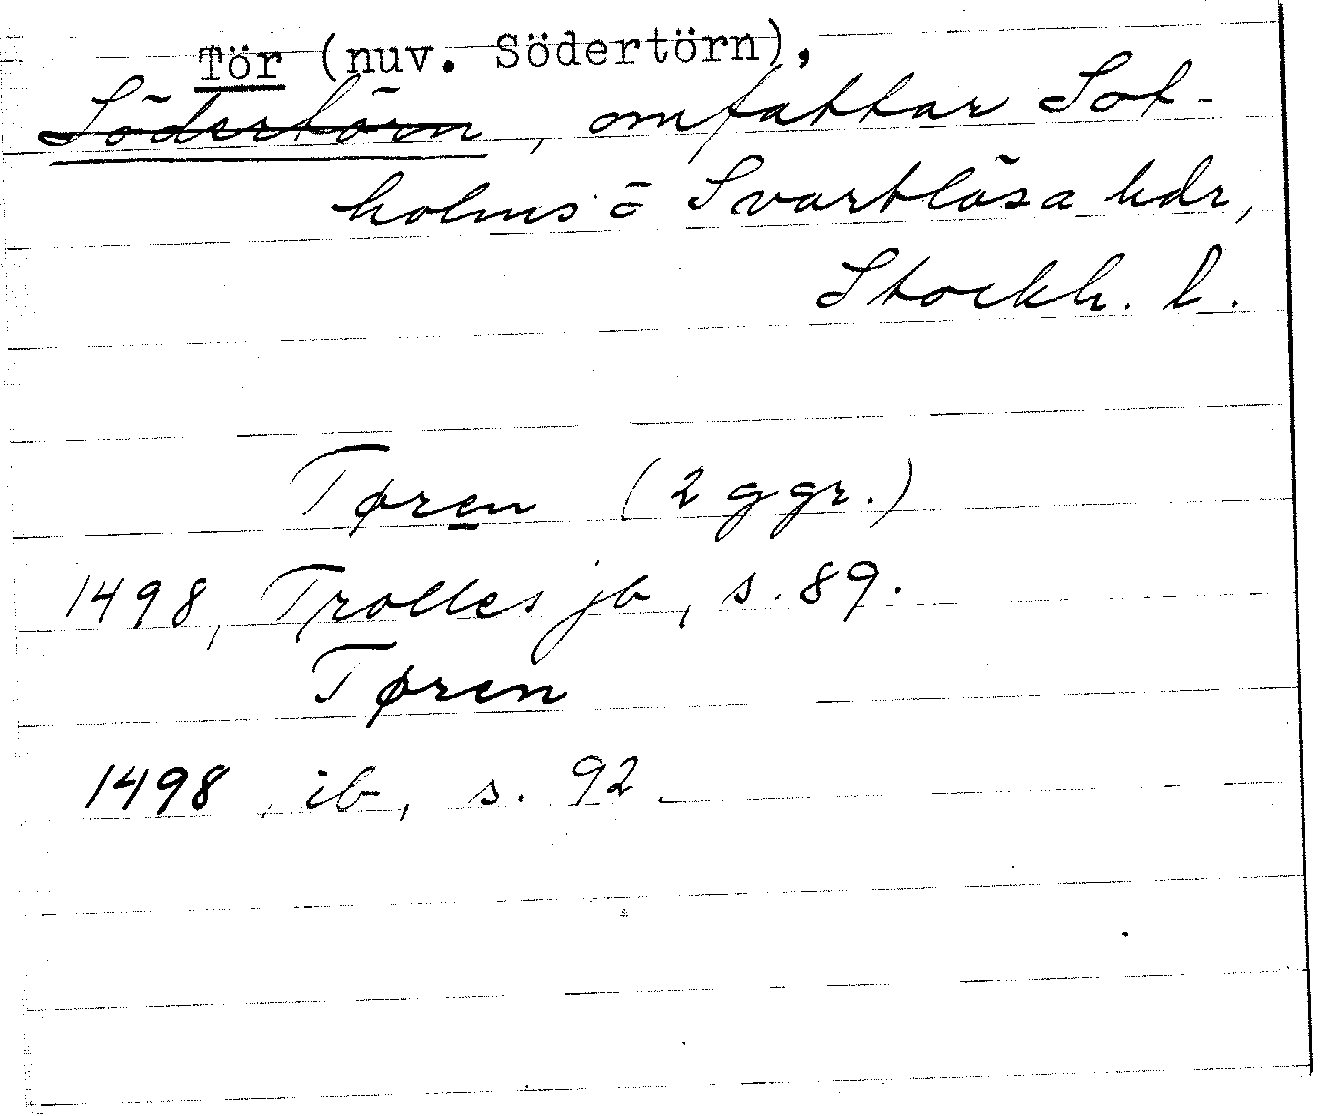 Tör (nuv. Södertörn),
Södertörn, omfattar Sot-
holms o Svartlösa hdr,
Stockh. l.
Tøren (2 ggr.)
1498, Trolles jb, s. 89.
Tøren
1498, ib, s. 92